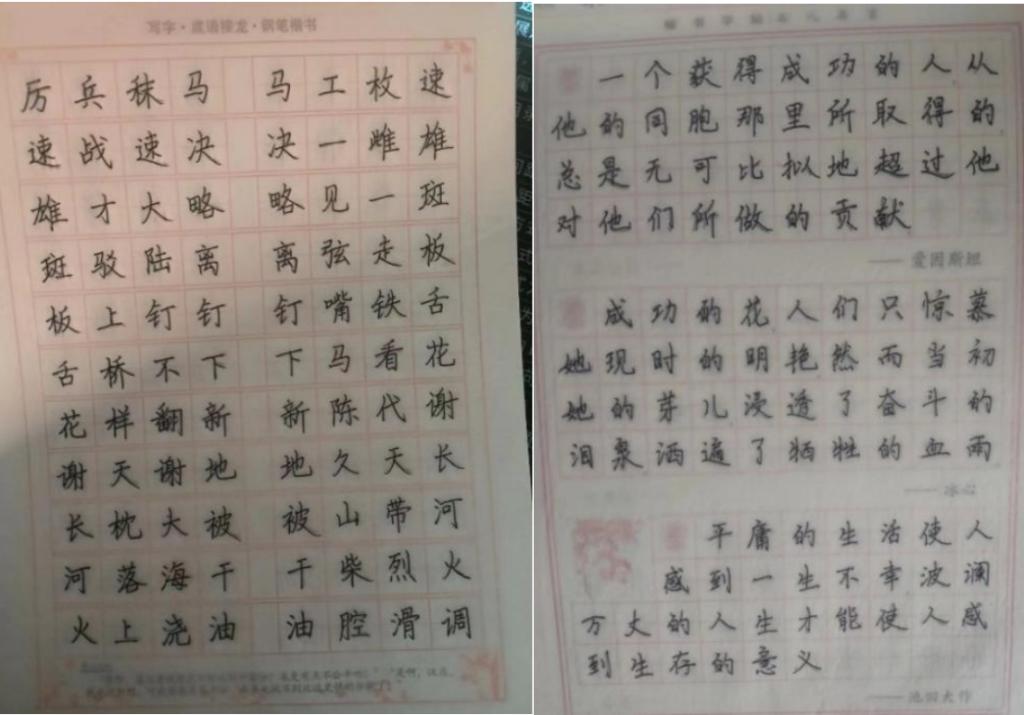 写字·成语接龙·钢笔楷书
厉兵秣马 马工枚速
速战速决 决一雌雄
雄才大略 略见一斑
斑驳陆离 离弦走板
板上钉钉 钉嘴铁舌
舌桥不下 下马看花
花样翻新 新陈代谢
谢天谢地 地久天长
长枕大被 被山带河
河落海干 干柴烈火
火上浇油 油腔滑调
一个获得成功的人从
他的同胞那里所取得的
总是无可比拟地超过他
对他们所做的贡献
——爱因斯坦
成功的花人们只惊慕
她现时的明艳然而当初
她的芽儿浸透了奋斗的
泪泉洒遍了牺牲的血雨
——冰心
平庸的生活使人
感到一生不幸波澜
万丈的人生才能使人感
到生存的意义
——池田大作